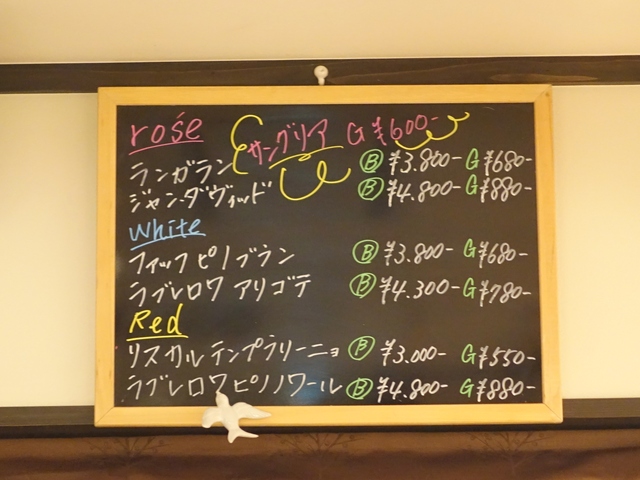 rosé サングリア G ¥600-
ランガラン Ⓑ ¥3.800- G ¥680-
ジャン・ダヴィッド Ⓑ ¥4.800- G ¥880-
White
ファッフ ピノ ブラン Ⓑ ¥3.800- G ¥680-
ラブレロワ アリゴテ Ⓑ ¥4.300- G ¥780-
Red
リスカル テンプラリーニョ Ⓑ ¥3.000- G ¥550-
ラブレロワ ピノノワール Ⓑ ¥4.800- G ¥880-